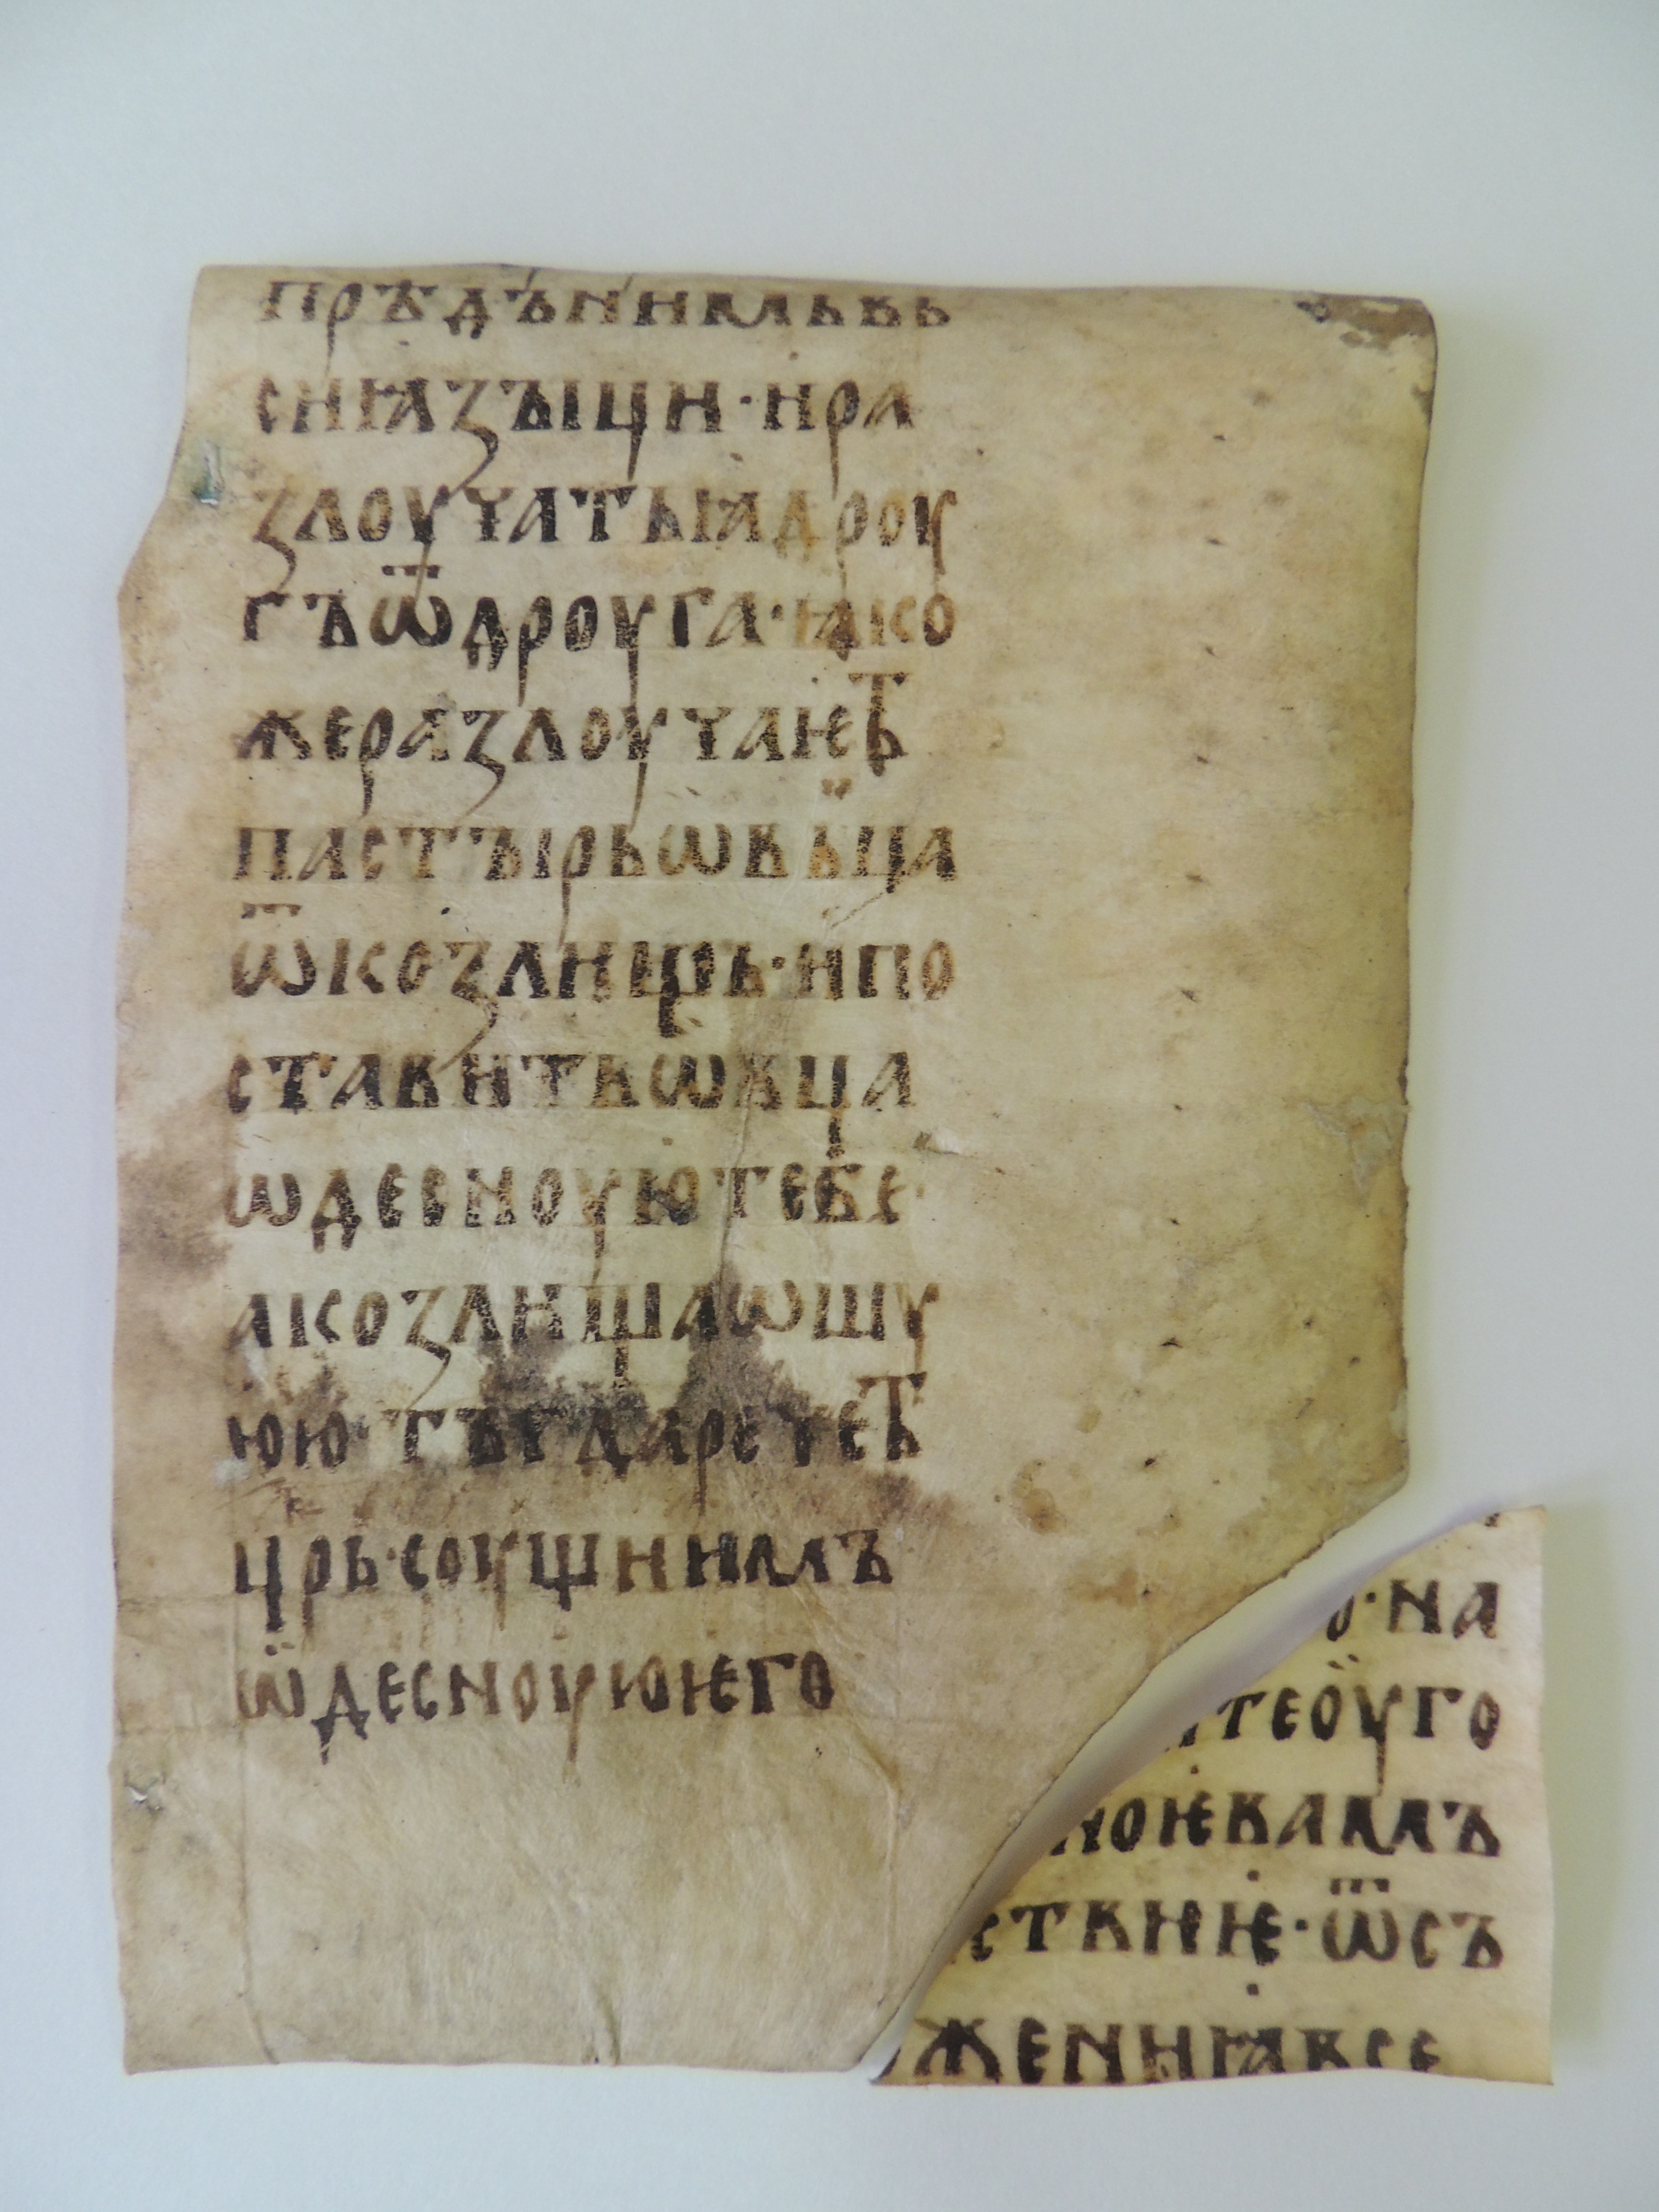 прѣдънимьвь
сиꙗзꙑци·ира
злоучатьꙗдроу
гъѿдроуга·ꙗко
жеразлоучаѥть
пастꙑрьѡвьца
ѿкозлищь·ипо
ставитьѡвца
ѡдесноуютебе·
акозлищаѡшу
юю·тъгдаречеть
црь·соущиимъ
ѿдесноуюѥго
о·на
теоуго
ноѥвамъ
твиѥ·ѿсъ
жениꙗвсе